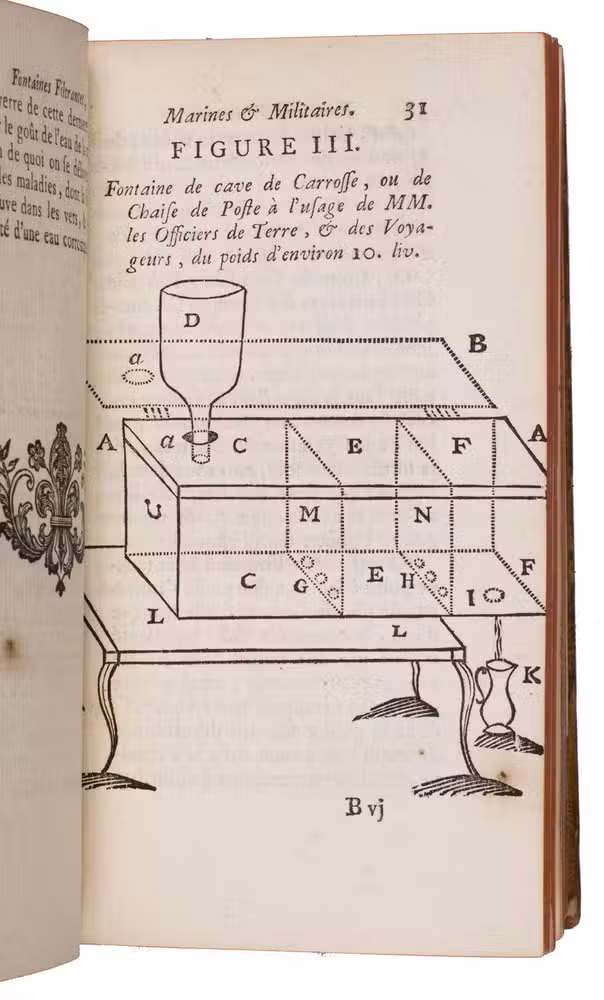 Fontaines
verre de cette
le goût de l'eau
de quoi on ſe
les maladies, dont
dans les vers,
d'une eau
Marines & Militaires. 31
FIGURE III.
Fontaine de cave de Carroſſe, ou de
Chaiſe de Poſte à l'uſage de MM.
les Officiers de Terre, & des Voya-
geurs, du poids d'environ 10. liv.
D
B
a
A a C E F A
C M N
C G E H I F
L L
K
B vj